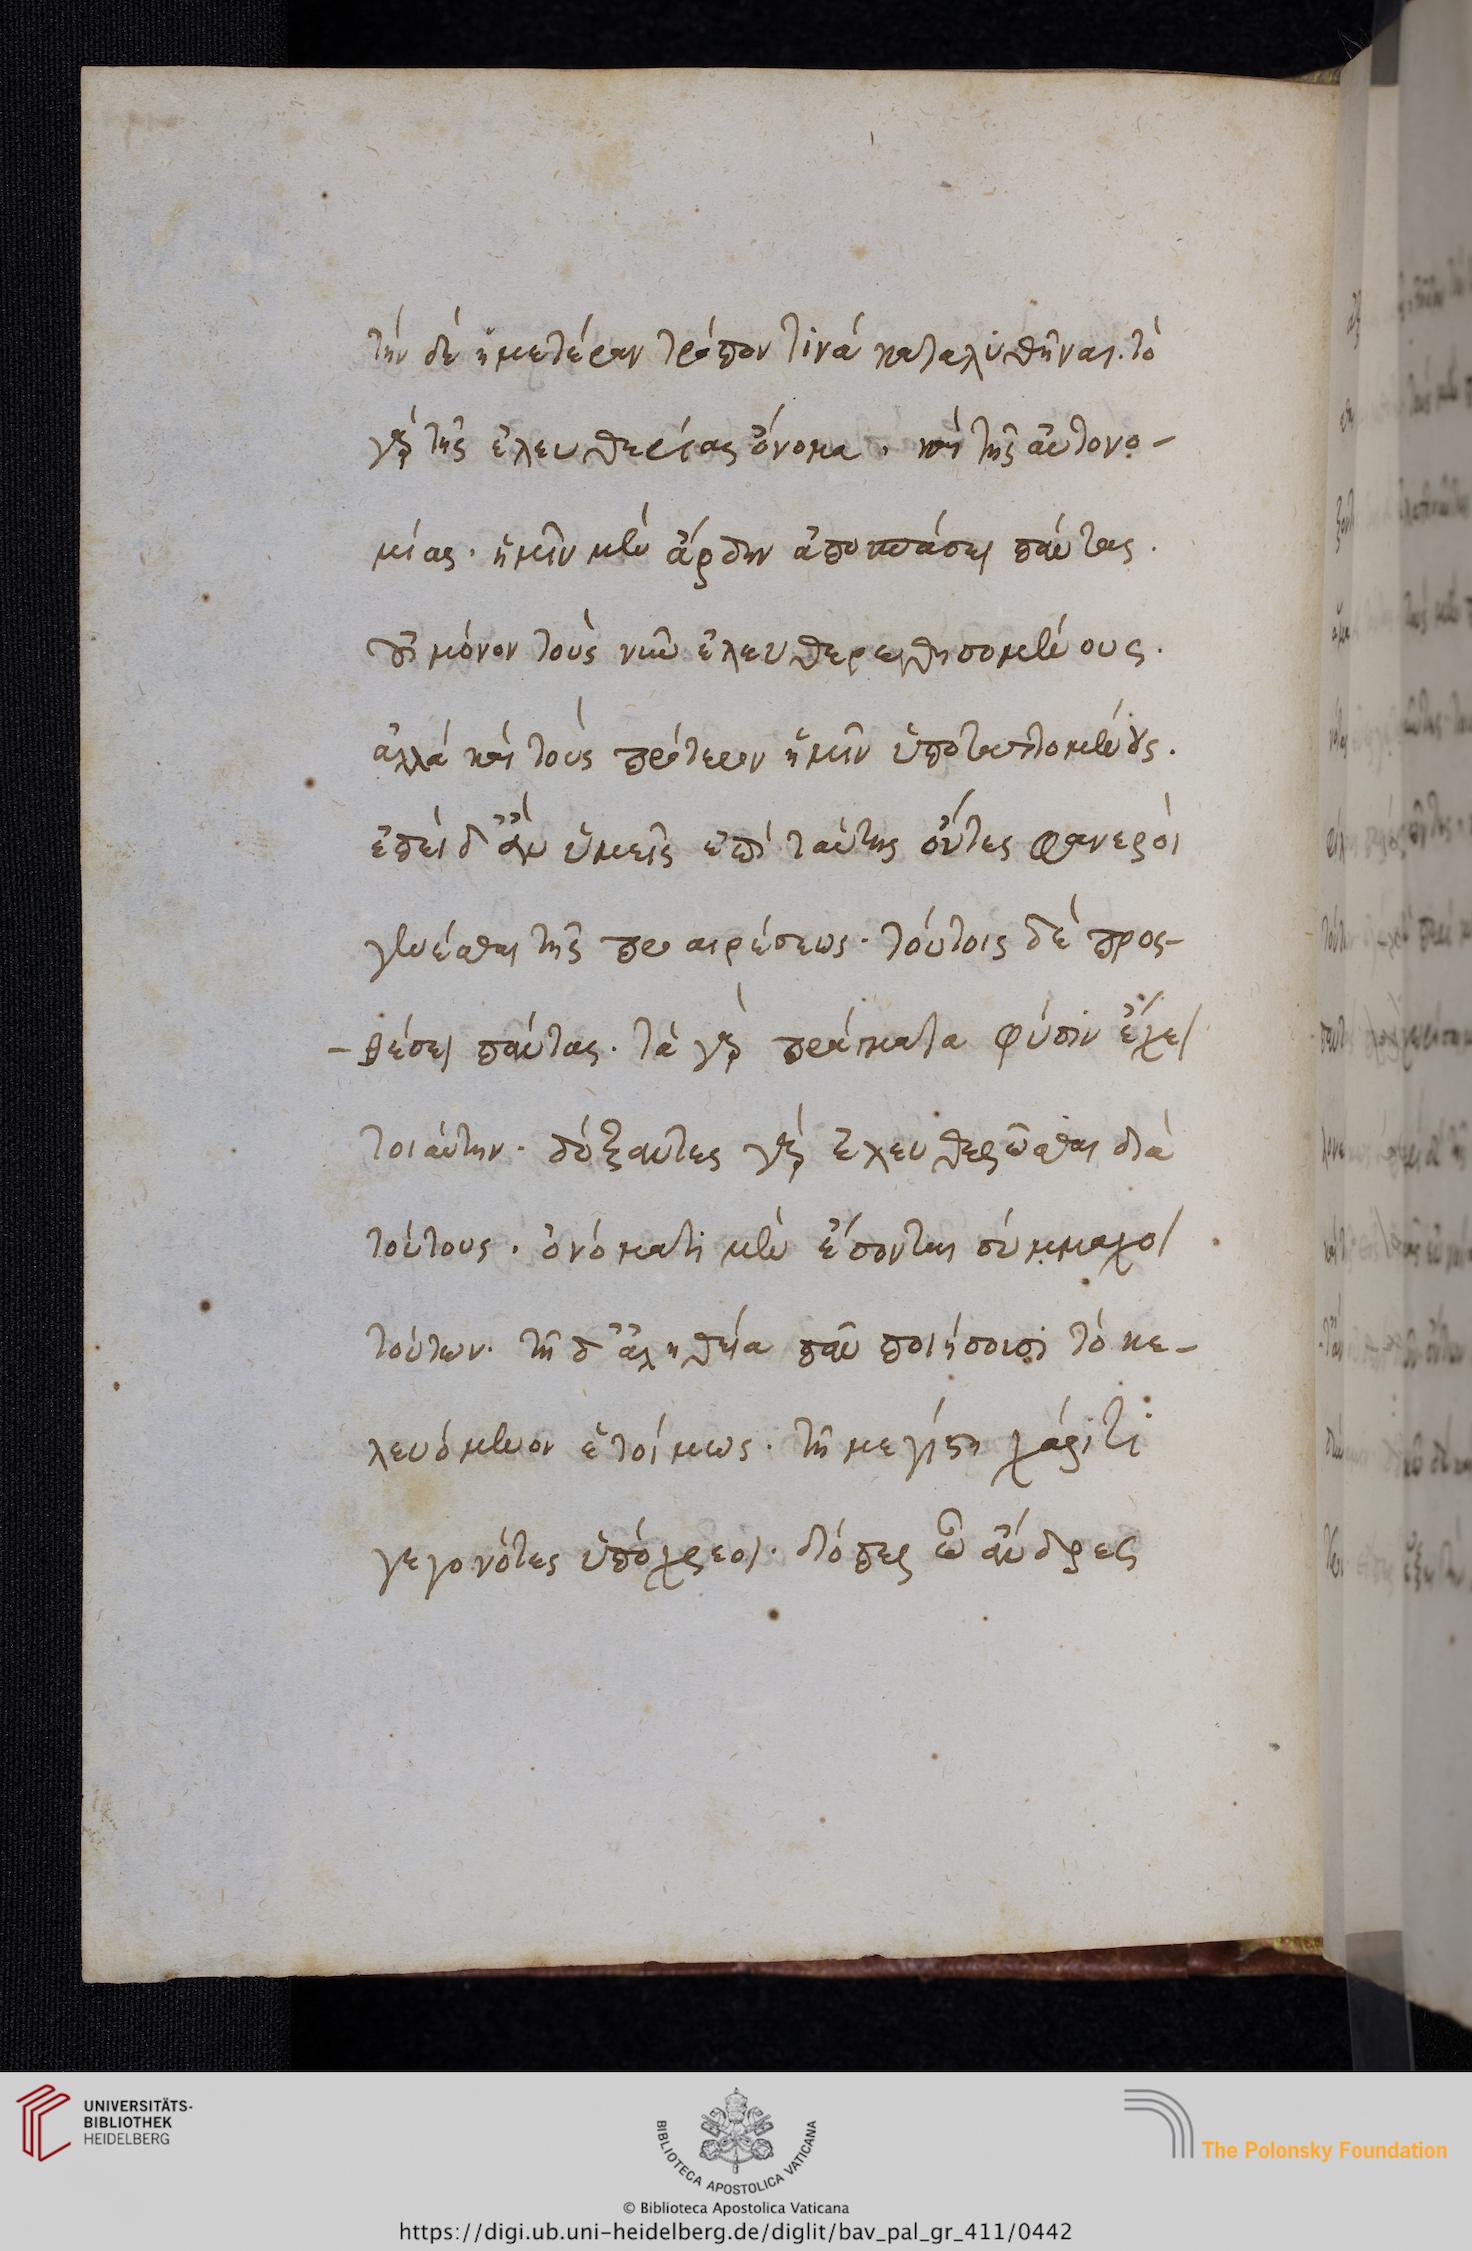 τὴν δὲ ἡμετέραν τρόπον τινὰ καταλυθῆναι. τὸ
γὰρ τῆς ἐλευθερίας ὄνομα. καὶ τῆς αὐτονο-
μίας. ἡμῖν μὲν ἄρδην ἀποσπάσει πάντας.
οὐ μόνον τοὺς νῦν ἐλευθερωθησομένους.
ἀλλὰ καὶ τοὺς πρότερον ἡμῖν ὑποταττομένους.
ἐπεὶ δ' ἂν ὑμεῖς ἐπὶ ταύτης ὄντες φανεροὶ
γένεσθαι τῆς προαιρέσεως. τούτοις δὲ προς-
-θέσει πάντας. τὰ γὰρ πράγματα φύσιν ἔχει
τοιαύτην. δόξαντες γὰρ ἐλευθερῶσθαι διὰ
τούτους. ὀνόματι μὲν ἔσονται σύμμαχοι
τούτων. τῇ δ' ἀληθεία πᾶν ποιήσουσι τὸ κε-
λευόμενον ἑτοίμως. τῇ μεγίστη χάριτι
γεγονότες ὑπόχρεοι. διόπερ ὦ ἄνδρες
UNIVERSITÄTS-
BIBLIOTHEK
HEIDELBERG
BIBLIOTECA APOSTOLICA VATICANA
© Biblioteca Apostolica Vaticana
The Polonsky Foundation
https://digi.ub.uni-heidelberg.de/diglit/bav_pal_gr_411/0442